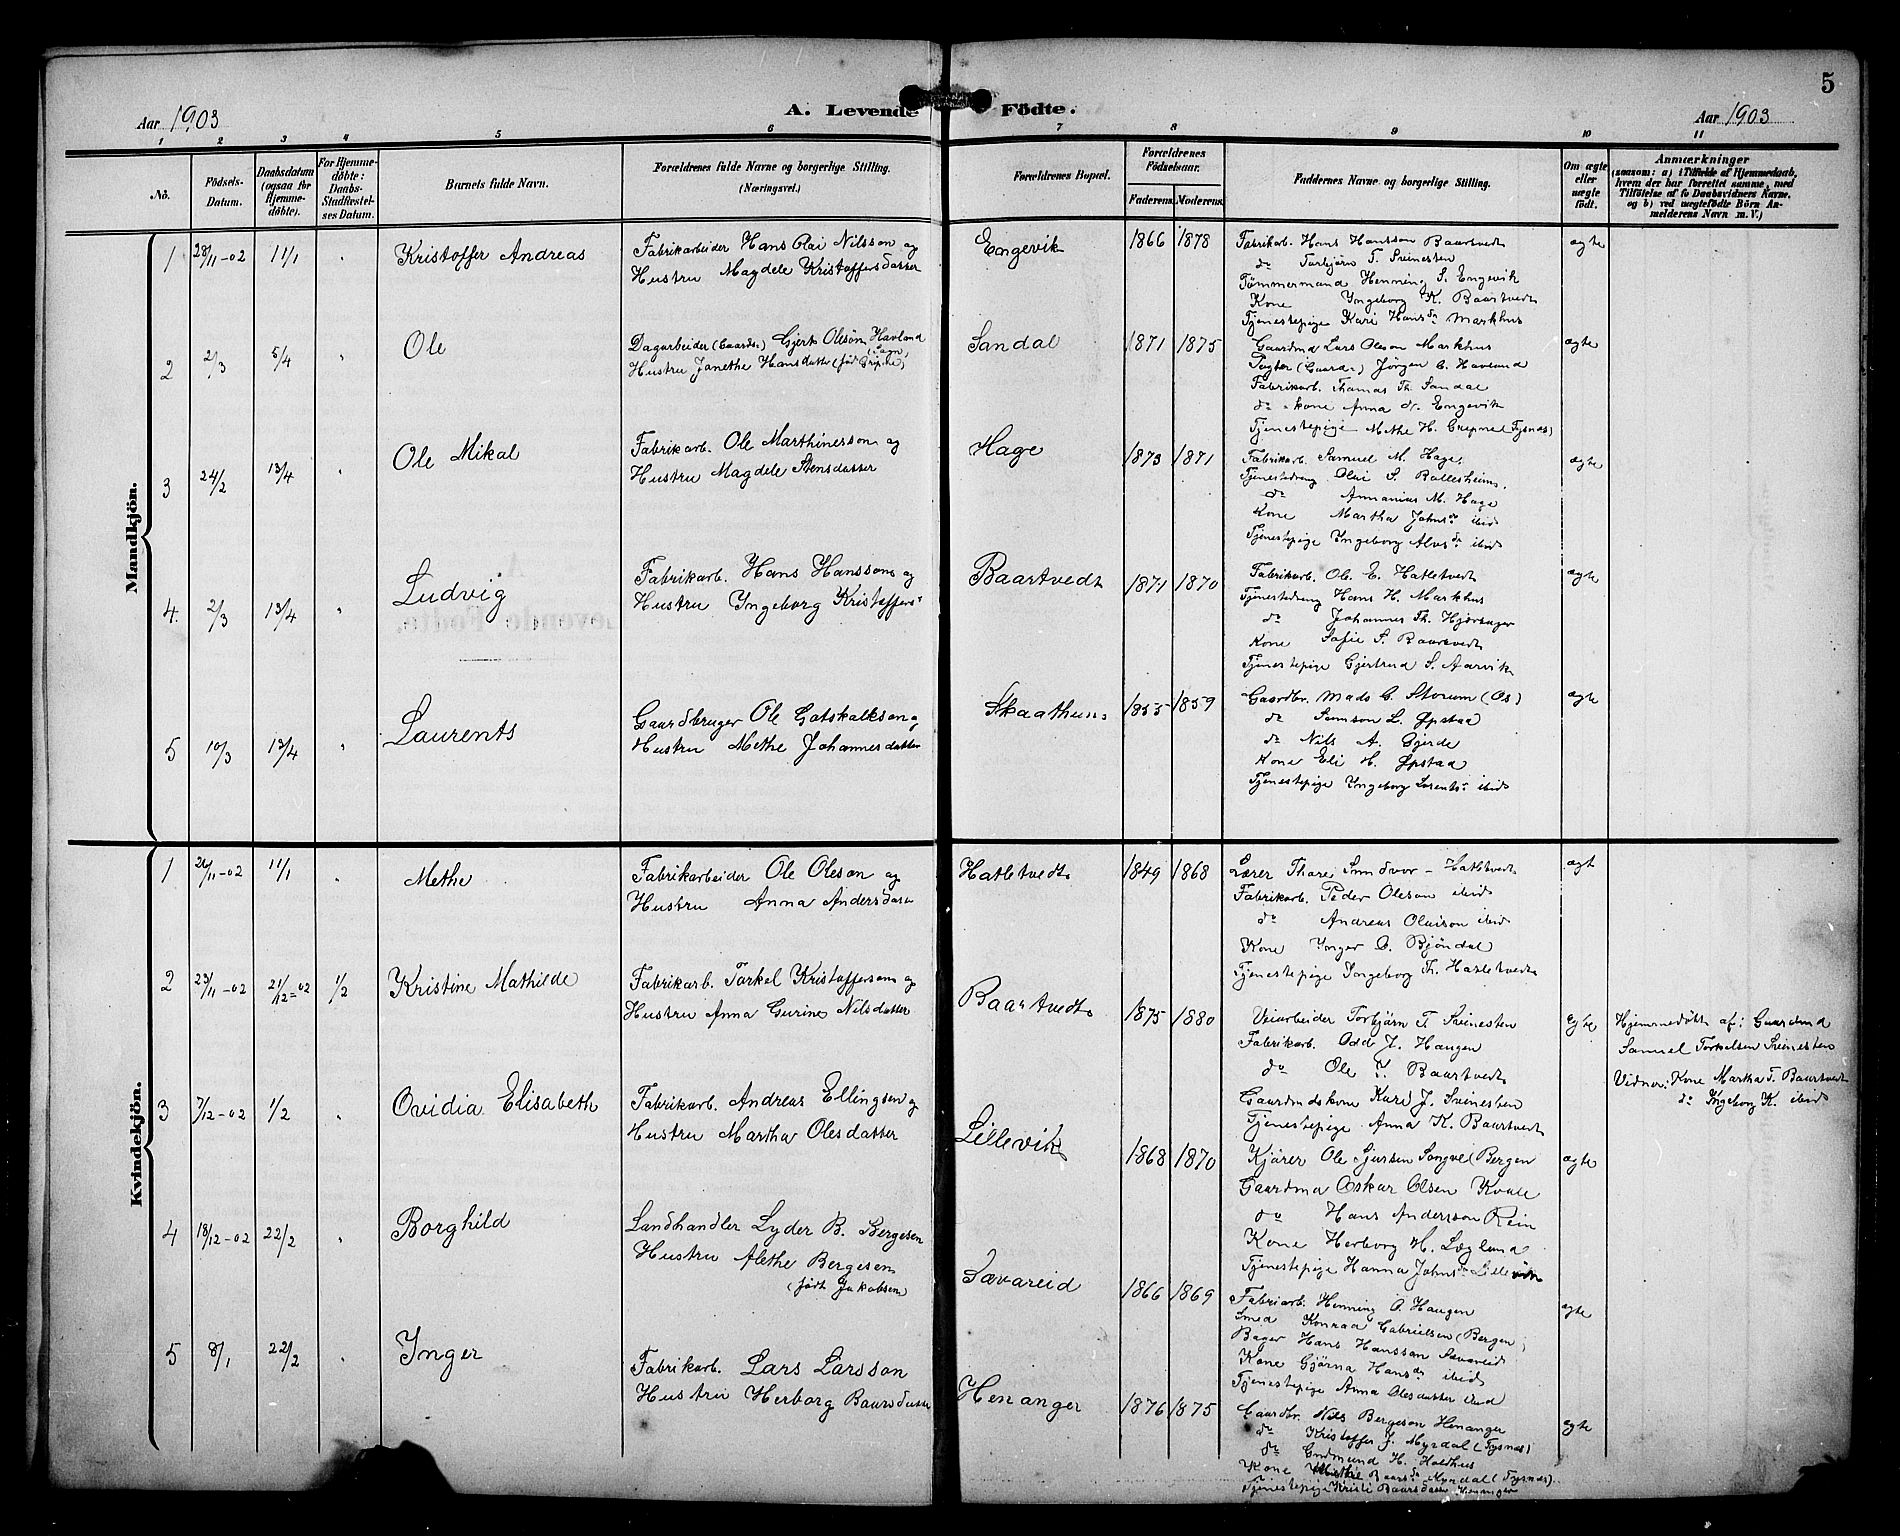 5
Aar 1903
A. Levende Födte.
Aar 1903
1 2 3 4 5 6 7 8 9 10 11
No.
Födsels-Datum.
Daabsdatum (ogsaa for Hjemme-döbte).
For Hjemme-döbte: Daabs-Stadfæstel-ses Datum.
Barnets fulde Navn.
Forældrenes fulde Navne og borgerlige Stilling.
(Næringsvei.)
Forældrenes Bopæl.
Forældrenes Födselsaar.
Faderens. Moderens.
Faddernes Navne og borgerlige Stilling.
Om ægte eller uægte födt.
Anmærkninger
(saasom: a) i Tilfælde af Hjemmedaab,
hvem der har forrettet samme, med
Tilföielse af to Daabsvidners Navne,
og b) ved uægtefödte Börn An-
melderens Navn m. V.)
Mandkjön.
1 28/11-02 11/1 " Kristoffer Andreas
Fabrikarbeider Hans Rai Nilsson og
Hustru Magdele Kristoffersdatter
Engevik 1866 1878
Fabrikarb. Hans Hansson Baartvedt
do Torbjörn T. Svinesten
Tømmermand Henning S. Engevik
Kone Yngeborg K. Baartvedt
Tjenestepige Kari Hansda Markhus
ægte
2 2/3 5/4 " Ole
Dagarbeider (Gaards:) Gjert Olesøn Havland
Hustru Janethe Hansdatter (fød
Sandal 1871 1875
Gaardmd Lars Oleson Markhus
Pagter (Gaard:) Jørgen C. Havland
Fabrikarb. Thomas Th. Sandal
do kone Anna do. Engevik
Tjenestepige Methe H. Gripne (Tysnæs)
ægte
3 24/2 13/4 " Ole Mikal
Fabrikarb. Ole Marthinesson og
Hustru Magdele Stensdatter
Hage 1873 1871
Fabrikarb. Samuel M. Hage.
Tjenestedreng Olai S. Ballesheim.
do Annanias M. Hage
Kone Martha Johnsda ibid
Tjenestepige Yngeborg Alvsda ibid
ægte
4. 2/3 13/4 " Ludvig
Fabrikarb. Hans Hansson og
Hustru Yngeborg Kristoffers:
Baartvedt 1871 1870
Fabrikarb. Ole E. Hatletvedt
Tjenestedreng Hans H. Markhus
do Johannes Th.
Kone Sofie S. Baartvedt
Tjenestepige Gjertrud S. Aarvik
ægte
5 10/3 13/4 " Laurents
Gaardbruger Ole Gotskalkson og
Hustru Methe Johannesdatter
Skaathun 1855 1859
Gaardbr. Mads C. Storum (Os)
do Samson L. Øpstad
do Nils A. Gjerde
Kone Eli H. Øpstad
Tjenestepige Yngeborg Lorents: ibid
ægte
Kvindekjön.
1 26/11-02 11/1 " Methe
Fabrikarbeider Ole Oleson og
Hustru Anna Andersdatter
Hatletvedt 1849 1868
Lærer Thore Sundvor - Hatletvedt
Fabrikarb. Peder Oleson ibid
do Andreas Olaison ibid
Kone Ynger O. Bjöndal
Tjenestepige Yngeborg Th. Hatletvedt
ægt
2 23/11-02 21/12=02 1/2 Kristine Mathilde
Fabrikarb. Torkel Kristofferson og
Hustru Anna Gurine Nilsdatter
Baartvedt 1875 1880
Veiarbeider Torbjørn T. Svinesten
Fabrikarb. Odd J. Haugen
do Ole T. Baartvedt
Gaardmdskone Kari J. Svinesten
Tjenestepige Anna K. Baartvedt
Egte
Hjemmedöbt af: Gaardmd
Samuel Torkelsen Svinesten
Vidner: Kone Martha T. Baartvedt
do Yngeborg K. ibid
3 7/12-02 1/2 " Ovidia Elisabeth
Fabrikarb. Andreas Ellingsen og
Hustru Martha Olesdatter
Lillevik 1868 1870
Kjører Ole Sjursen (Bergen
Gaardmd Oskar Olsen Kvale
do Hans Andersson Rein
Kone Herborg H. Lægland
Tjenestepige Hanna Johnsda Lillevik
ægte
4 18/12-02 22/2 " Borghild
Landhandler Lyder B. Bergesen
Hustru Alethe Bergesen
(födt Jakobsen
Sævareid 1866 1869
Fabrikarb. Henning O. Haugen
Smed Konrad Gabrielsen (Bergen)
Bager Hans Hansson Sævareid
Kone Gjørna Hansda ibid
Tjenestepige Anna Olesdatter ibid
ægte
5 8/1 22/2 " Ynger
Fabrikarb. Lars Larsson
Hustru Herborg Baarsdatter
Henanger 1876 1875
Gaardbr. Nils Bergeson Henanger
do Kristoffer J. Myrdal (Tysnæs)
do Gudmund H. Holdhus
Kone Methe Baarsda Myrdal (Tysnæs).
Tjenestepige Kristi Baarsdatter Henanger
ægte